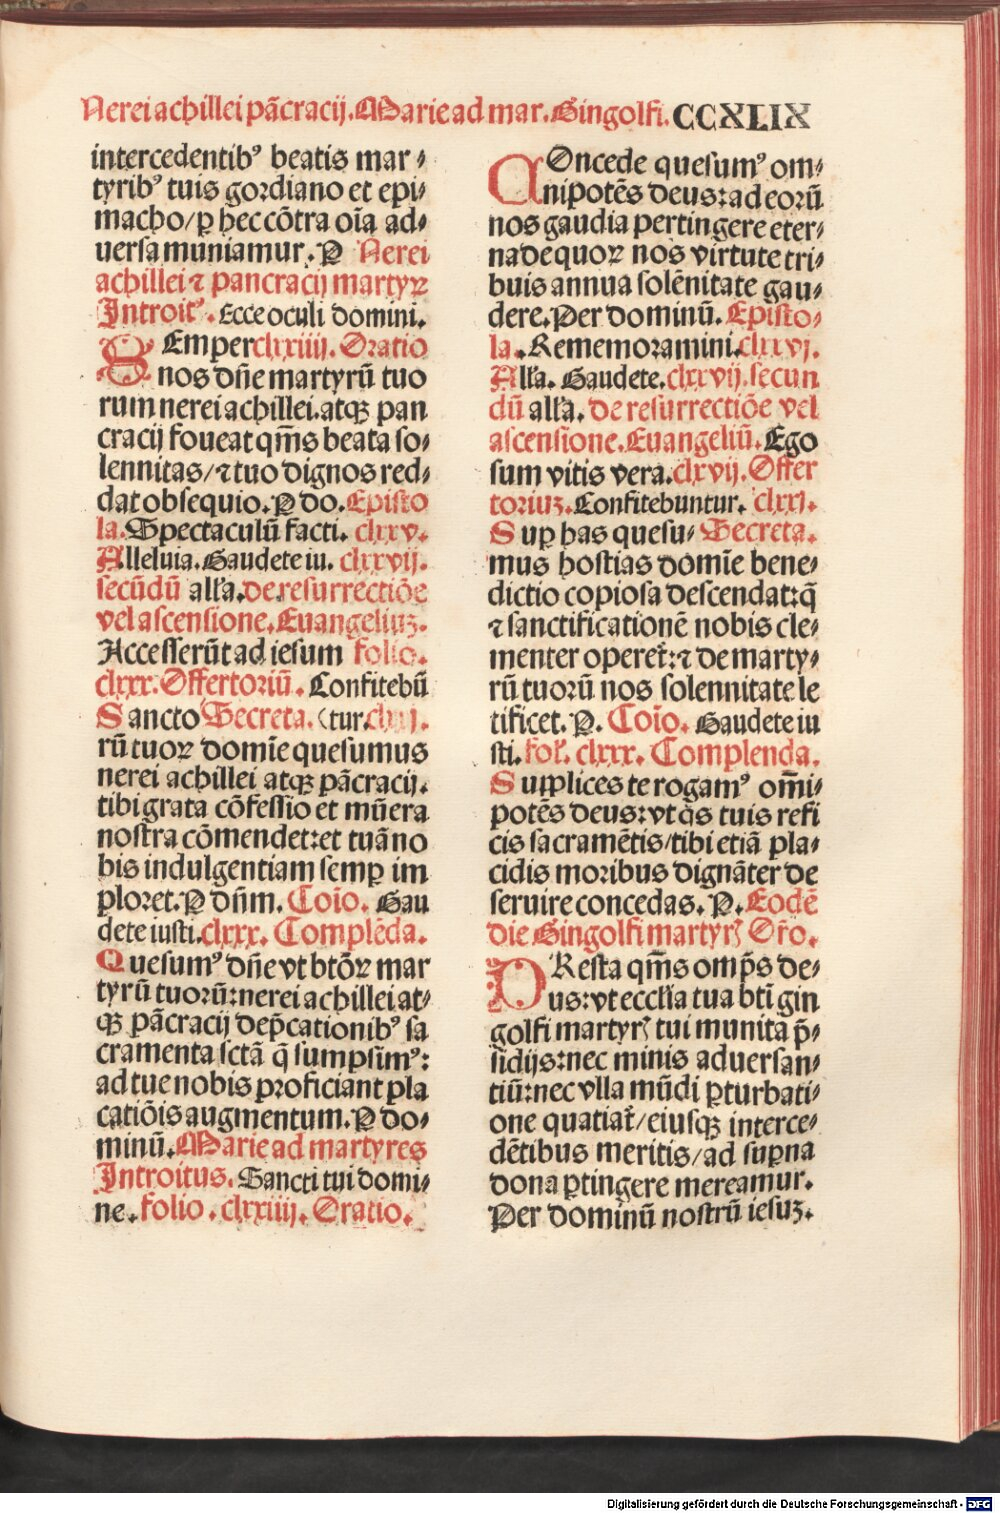 Nerei achillei pãcracij. Marie ad mar. Gingolfi. CCXLIX
intercedentibꝰ beatis mar⸗
tyribꝰ tuis gordiano et epi⸗
macho/ ꝑ hec cõtra oĩa ad⸗
uersa muniamur. P Nerei
achillei ⁊ pancracij martyrꝝ
Introitꝰ. Ecce oculi domini.
SEmper clxxiiij. Oratio
nos dñe martyrũ tuo
rum nerei achillei. atqꝫ pan
cracij foueat qm̃s beata so⸗
lennitas/ ⁊ tuo dignos red⸗
dat obsequio. P do. Episto
la. Spectaculũ facti. clxxv.
Alleluia. Gaudete iu. clxxvij.
secũdũ alľa. de resurrectiõe
vel ascensione. Euangeliuꝫ.
Accesserũt ad iesum folio.
clxxx. Offertoriũ. Confitebũ
Sancto Secreta. (tur.
rũ tuoꝝ domĩe quesumus
nerei achillei atqꝫ pãcracij.
tibi grata cõfessio et mũera
nostra cõmendet: et tuã no
bis indulgentiam semꝑ im
ploret. P dñm. Coĩo. Gau
dete iusti. clxxx. Complẽda.
Quesumꝰ dñe vt btõꝝ mar
tyrũ tuorũ: nerei achillei at⸗
qꝫ pãcracij dep̃cationibꝰ sa
cramenta sctã q̃ sumpsimꝰ:
ad tue nobis proficiant pla
catiõis augmentum. P do⸗
minũ. Marie ad martyres
Introitus. Sancti tui domi⸗
ne. folio. clxxiiij. Oratio.
COncede quesumꝰ om⸗
nipotẽs deus: ad eorũ
nos gaudia pertingere eter⸗
na de quoꝝ nos virtute tri⸗
buis annua solẽnitate gau⸗
dere. Per dominũ. Episto⸗
la. Rememoramini. clxxvj.
Alľa. Gaudete. clxxvij. secun
dũ alľa. de resurrectiõe vel
ascensione. Euangeliũ. Ego
sum vitis vera. clxvij. Offer
toriuꝫ. Confitebuntur. clxxj.
Suꝑ has quesu⸗ Secreta.
mus hostias domĩe bene⸗
dictio copiosa descendat: q̃
⁊ sanctificationẽ nobis cle⸗
menter operet᷑: ⁊ de marty⸗
rũ tuorũ nos solennitate le
tificet. P. Coĩo. Gaudete iu
sti. foľ. clxxx. Complenda.
Supplices te rogamꝰ om̃i⸗
potẽs deus: vt q̃s tuis refi
cis sacramẽtis/ tibi etiã pla⸗
cidis moribus dignãter de
seruire concedas. P. Eodẽ
die Gingolfi martyrꝭ Or̃o.
PResta qm̃s omp̃s de⸗
us: vt eccľia tua btĩ gin
golfi martyrꝭ tui munita p̃⸗
sidijs: nec minis aduersan⸗
tiũ: nec vlla mũdi ꝑturbati⸗
one quatiat᷑/ eiusqꝫ interce⸗
dẽtibus meritis/ ad suꝑna
dona ꝑtingere mereamur.
Per dominũ nostrũ iesuꝫ.
Digitalisierung gefördert durch die Deutsche Forschungsgemeinschaft - DFG